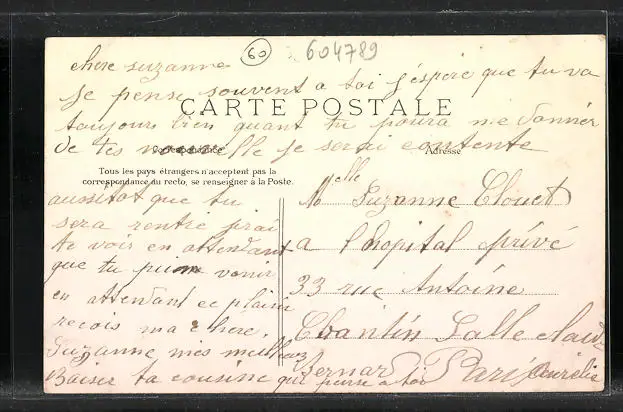 60 604789
chere suzanne
je pense souvent a toi j'éspère que tu va
CARTE POSTALE
toujours bien quant tu poura me donner
de tes nouvelle je serai contente
Correspondance Adresse
Tous les pays étrangers n'acceptent pas la
correspondance au recto, se renseigner à la Poste.
aussitot que tu
sera rentré j'rai
te voir en attendant
que tu puisse venir
en attendant ce plaisir
recois ma chere
Suzanne mes meilleur
Baiser ta cousine qui pense a toi
Aurélie
Melle Suzanne Clouet
a l'hopital privé
33 rue Antoine
Chantin Salle Claude
Bernard Paris